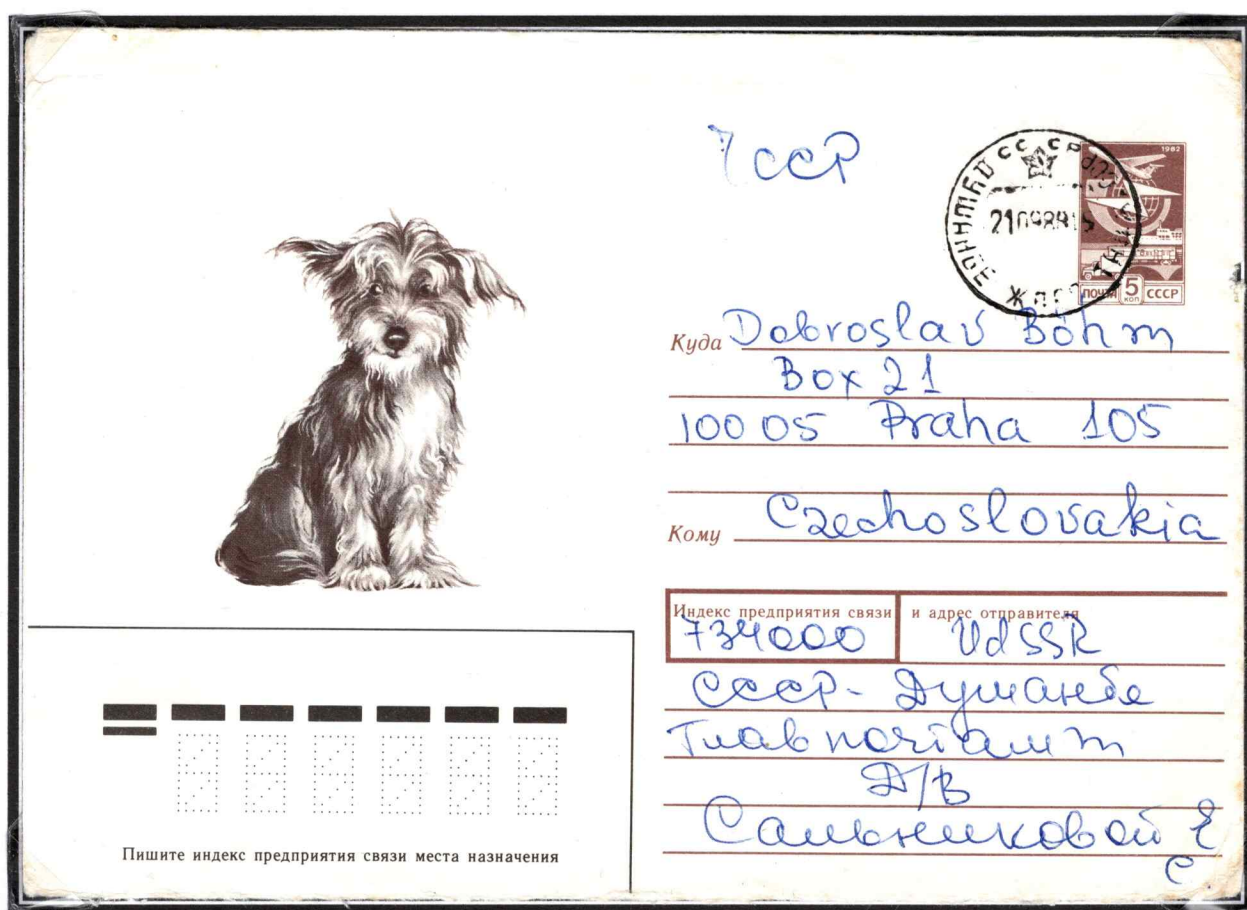 ЧССР
1982
21 09 88 19
ПОЧТА 5 КОП СССР
Куда Dobroslav Böhm
Box 21
10005 Praha 105
Кому Czechoslovakia
Индекс предприятия связи и адрес отправителя
734000 UdSSR
СССР - Душанбе
Главпочтамт
Д/В
Сальниковой Е
С
Пишите индекс предприятия связи места назначения